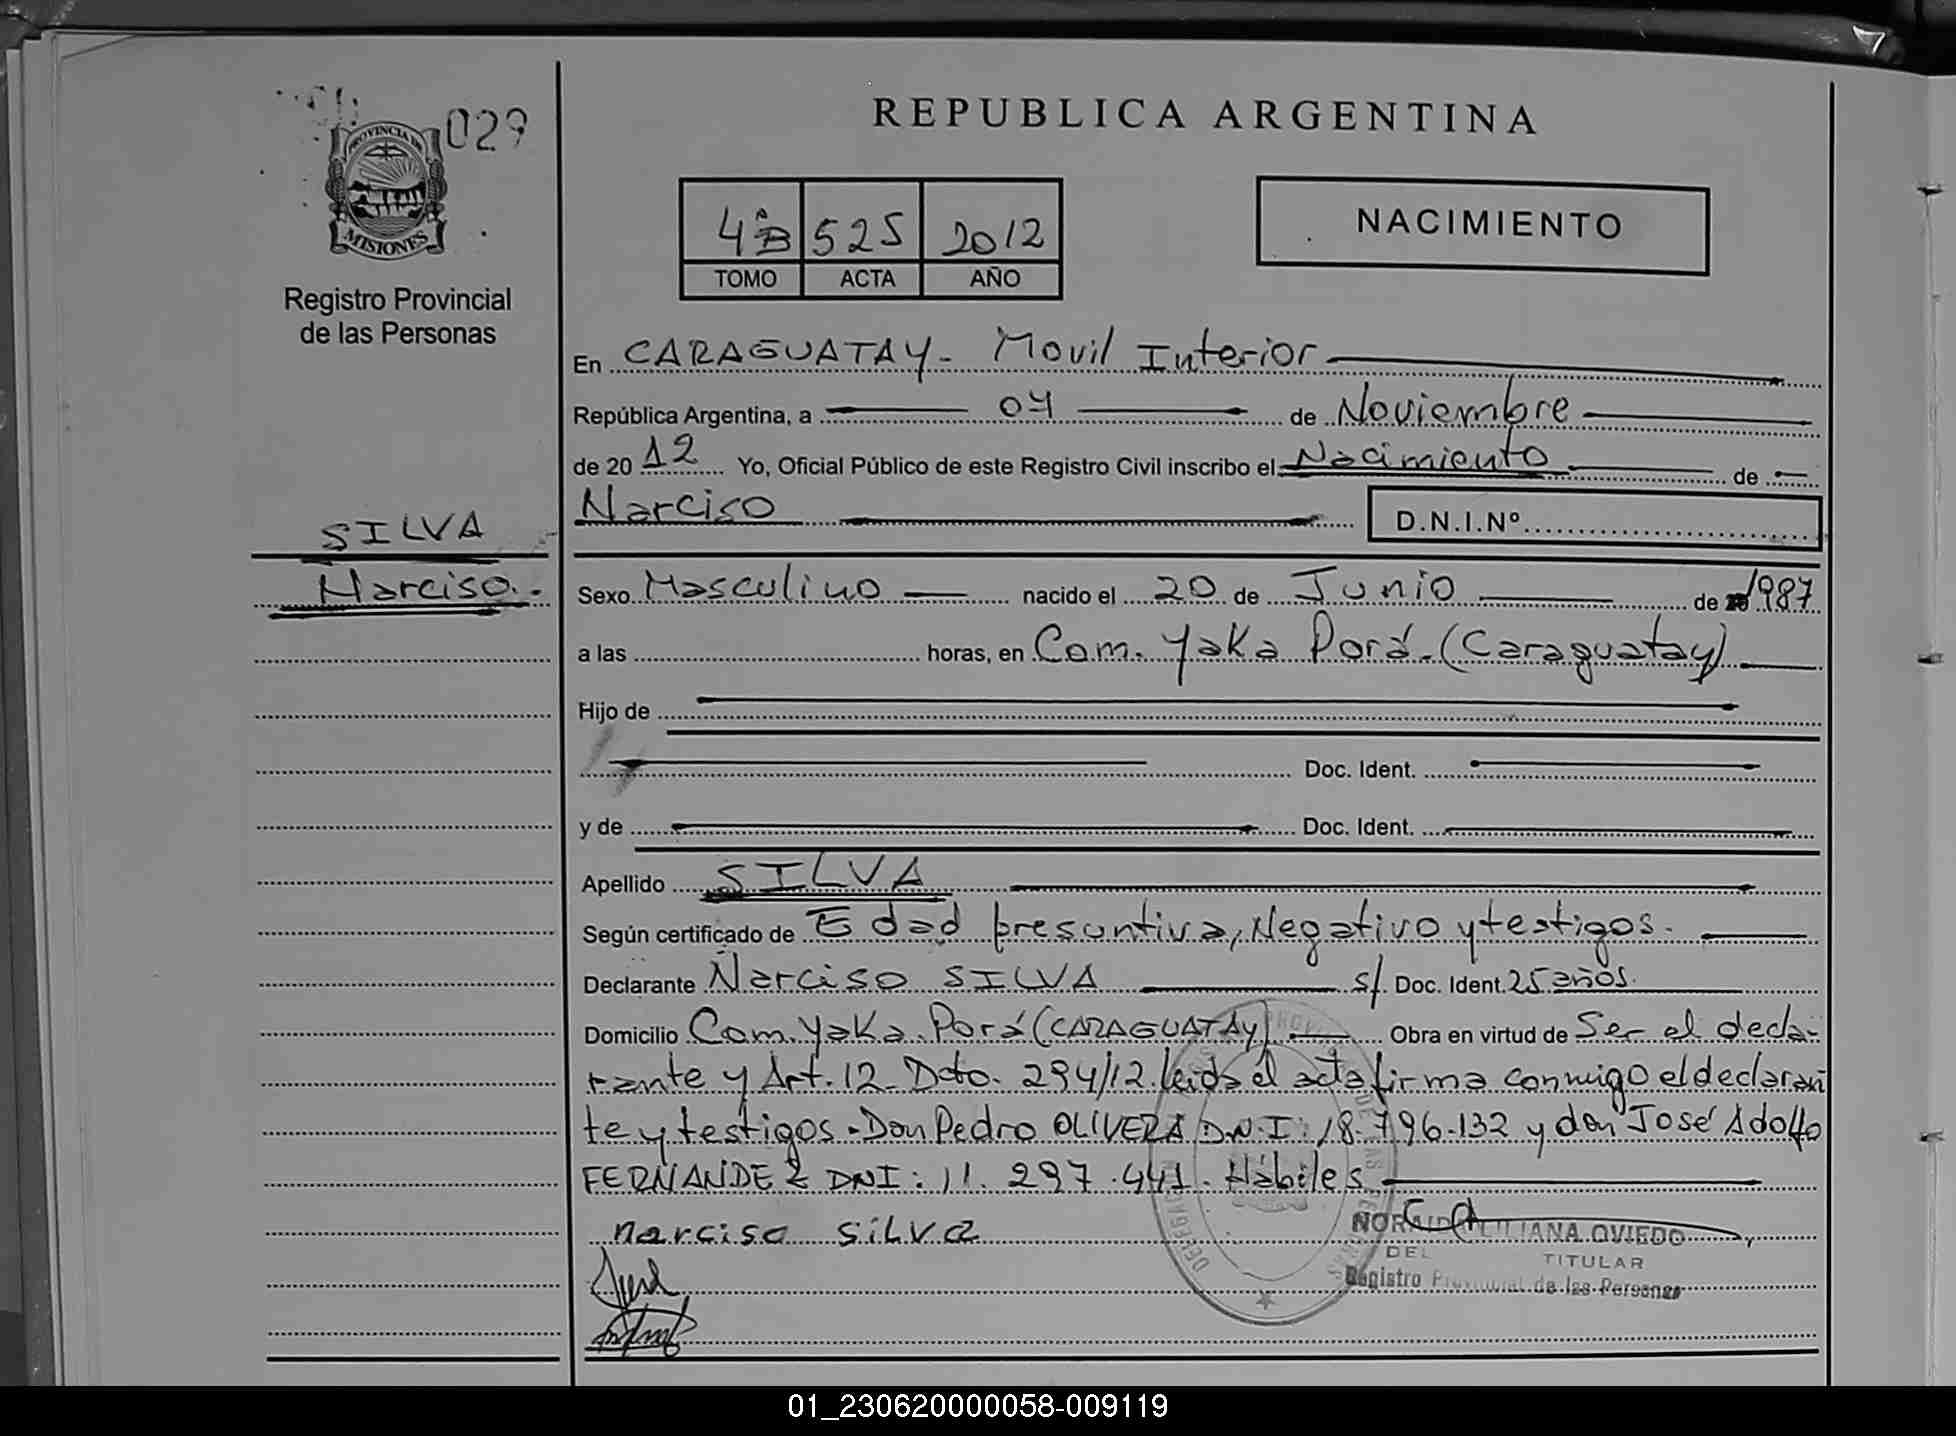 029
PROVINCIA DE
MISIONES
Registro Provincial
de las Personas
SILVA
Narciso.
REPUBLICA ARGENTINA
4ºB 525 2012
TOMO ACTA AÑO
NACIMIENTO
En CARAGUATAY - Movil Interior
República Argentina, a 04 de Noviembre
de 2012 Yo, Oficial Público de este Registro Civil inscribo el Nacimiento de
Narciso D.N.I.Nº
Sexo Masculino nacido el 20 de Junio de 1987
a las horas, en Com. Yaka Porá. (Caraguatay)
Hijo de
Doc. Ident.
y de Doc. Ident.
Apellido SILVA
Según certificado de Edad presuntiva, Negativo y testigos.
Declarante Narciso SILVA s/. Doc. Ident. 25 años.
Domicilio Com. Yaka Porá (CARAGUATAY) Obra en virtud de Ser el decla-
rante y Art. 12 - Dcto. 294/12. leida el acta firma conmigo el declaran
te y testigos - Don Pedro OLIVERA D.N.I: 18.796.132 y don José Adolfo
FERNANDEZ DNI: 11.297.441. Hábiles
narciso silva
NORAIDA LILIANA OVIEDO
DEL TITULAR
Registro Provincial de las Personas
01_230620000058-009119